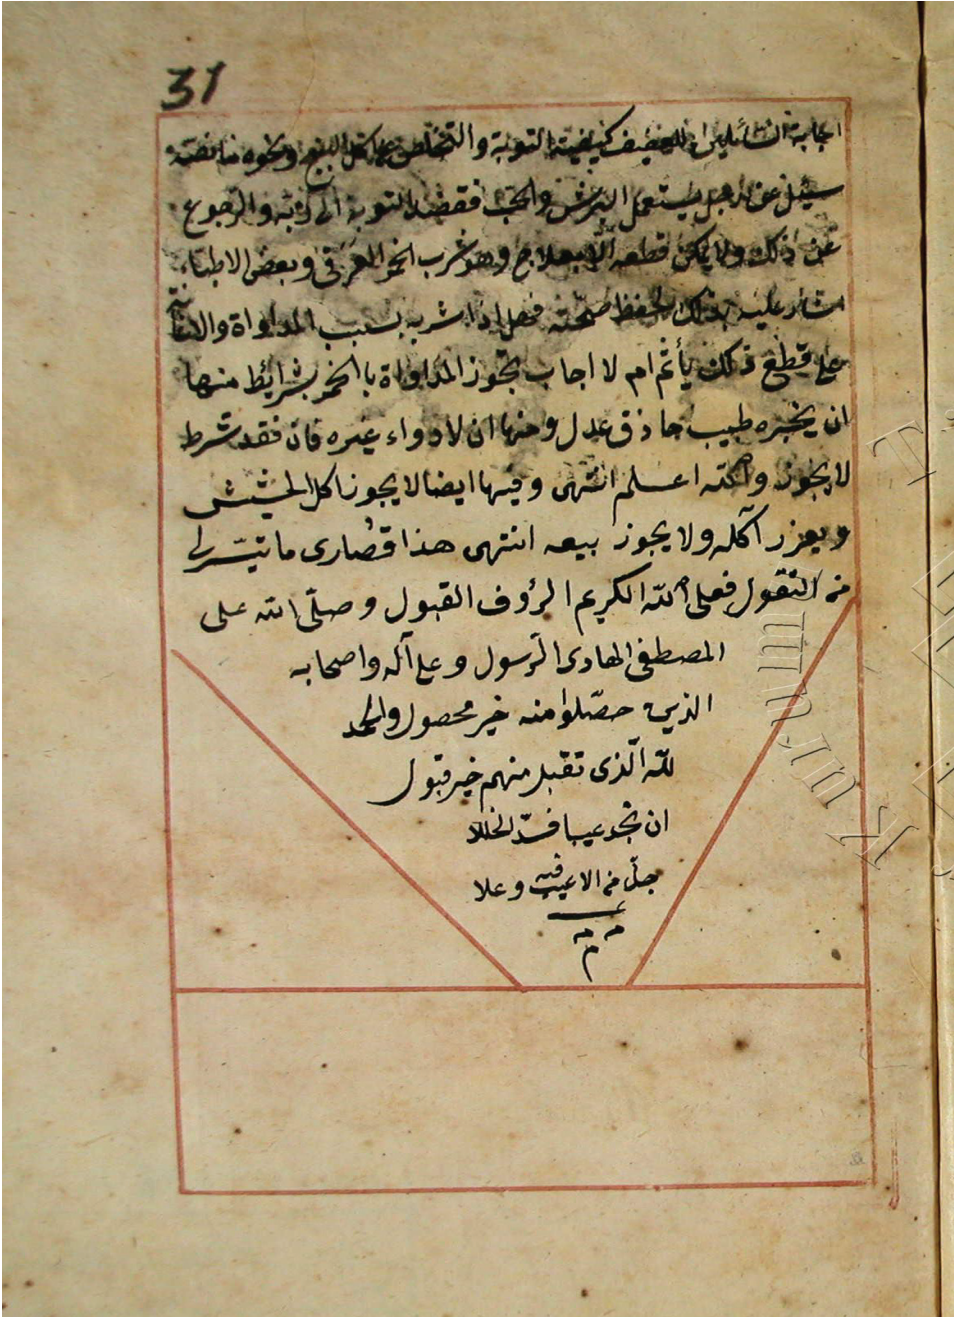 31
اجابة السائلين كيفية التوبة والتخلص عن اكل البنج ونحوه ما نصه
سئل عن رجل يستعمل البرش والحب فقصد التوبة الى ربه والرجوع
عن ذلك ولا يمكن قطعه الا بعلاج وهو شرب الخمر العرقى وبعض الاطباء
اشار عليه بذلك لحفظ صحته فهل اذا شربه بسبب المداواة
على قطع ذلك يأثم ام لا اجاب تجوز المداواة بالخمر بشرائط منها
ان يخبره طبيب حاذق عدل ومنها ان لا دواء غيره فان فقد شرط
لا يجوز والله اعلم انتهى وفيها ايضا لا يجوز اكل الحشيش
ويعزر آكله ولا يجوز بيعه انتهى هذا قصارى ما تيسر لى
من النقول فعلى الله الكريم الرؤف القبول وصلّى الله على
المصطفى الهادى الرسول وعلى آله واصحابه
الذين حصّلوا منه خير محصول والحمد
لله الّذى تقبل منهم خير قبول
ان تجد عيبا فسدّ الخللا
جلّ من لا عيب فيه وعلا
م م م